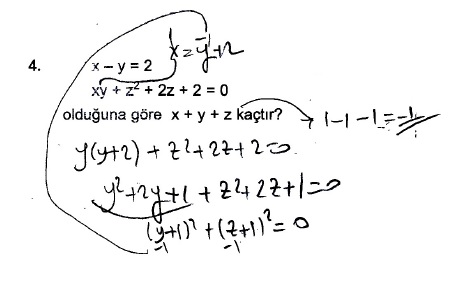 4.
x – y = 2
x = y + 2
-1
xy + z² + 2z + 2 = 0
olduğuna göre x + y + z kaçtır?
1-1-1=-1
y(y+2) + z²+2z+2=0
y²+2y+1 + z²+2z+1=0
(y+1)² + (z+1)² = 0
-1 -1